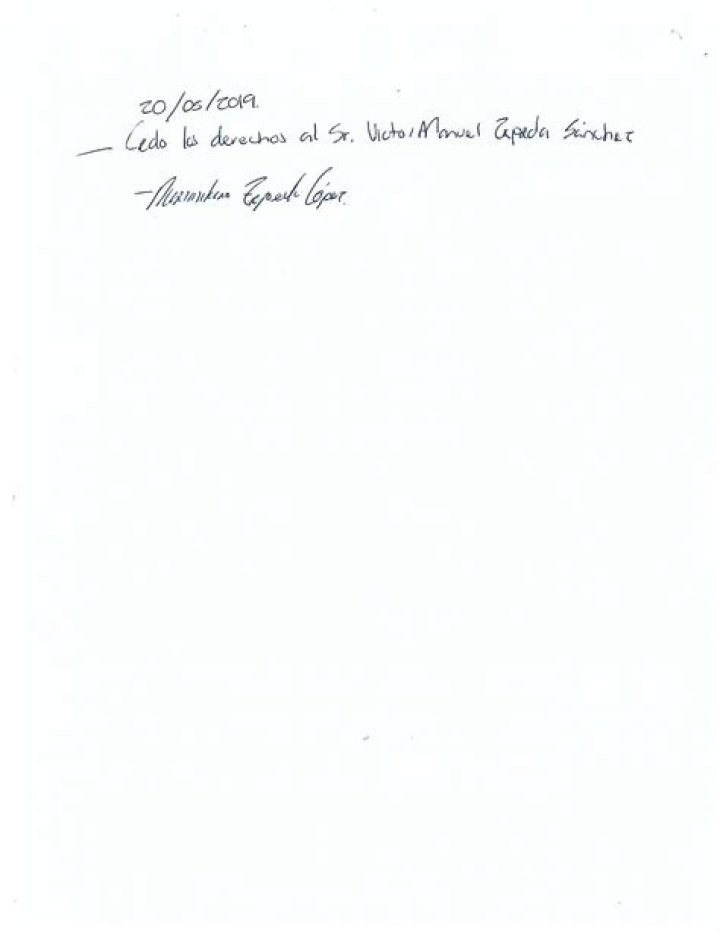 20/05/2019.
Cedo los derechos al Sr. Victor Manuel Zepeda Sánchez
- Zepeda López.